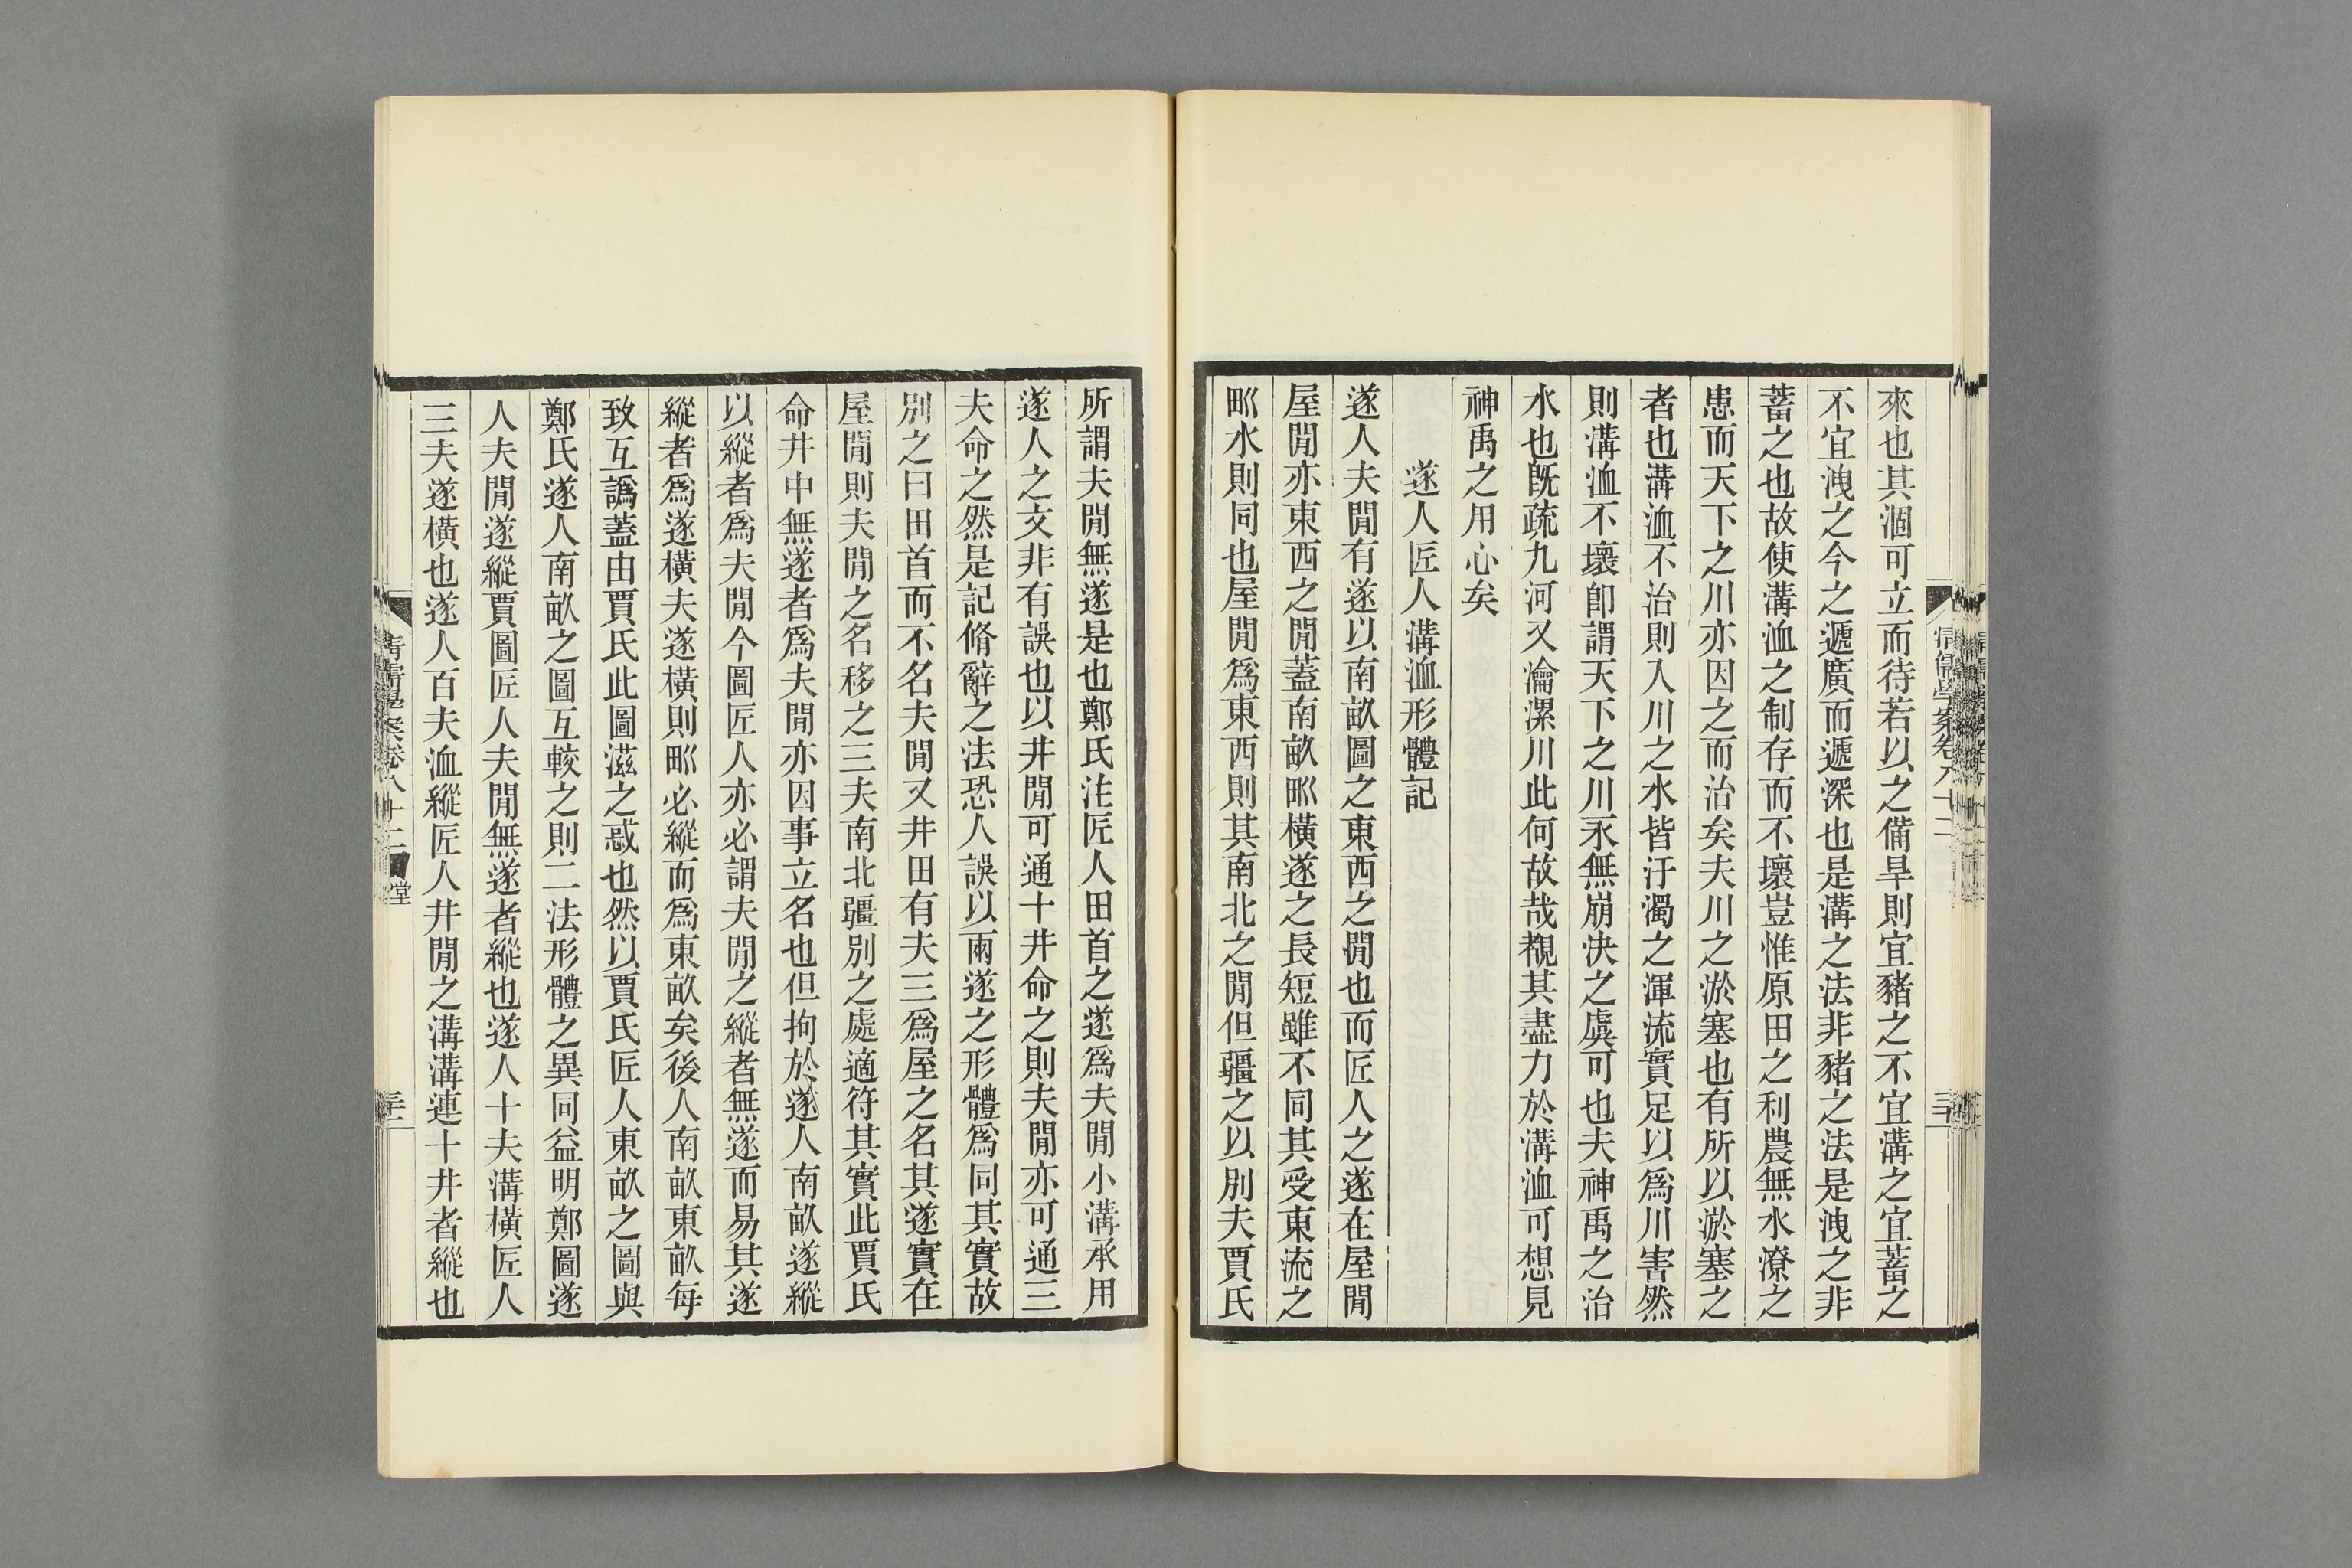 來也其涸可立而待若以之備旱則宜豬之不宜溝之宜蓄之
不宜洩之今之遞廣而遞深也是溝之法非豬之法是洩之非
蓄之也故使溝洫之制存而不壞豈惟原田之利農無水潦之
患而天下之川亦因之而治矣夫川之淤塞也有所以淤塞之
者也溝洫不治則入川之水皆汙濁之渾流實足以爲川害然
則溝洫不壞卽謂天下之川永無崩決之虞可也夫神禹之治
水也旣疏九河又瀹漯川此何故哉覩其盡力於溝洫可想見
神禹之用心矣
遂人匠人溝洫形體記
遂人夫閒有遂以南畝圖之東西之閒也而匠人之遂在屋閒
屋閒亦東西之閒蓋南畝甽橫遂之長短雖不同其受東流之
甽水則同也屋閒爲東西則其南北之閒但疆之以別夫賈氏
清儒學案卷八十二
三十
所謂夫閒無遂是也鄭氏注匠人田首之遂爲夫閒小溝承用
遂人之文非有誤也以井閒可通十井命之則夫閒亦可通三
夫命之然是記脩辭之法恐人誤以兩遂之形體爲同其實故
別之曰田首而不名夫閒又井田有夫三爲屋之名其遂實在
屋閒則夫閒之名移之三夫南北疆別之處適符其實此賈氏
命井中無遂者爲夫閒亦因事立名也但拘於遂人南畝遂縱
以縱者爲夫閒今圖匠人亦必謂夫閒之縱者無遂而易其遂
縱者爲遂橫夫遂橫則甽必縱而爲東畝矣後人南畝東畝每
致互譌蓋由賈氏此圖滋之惑也然以賈氏匠人東畝之圖與
鄭氏遂人南畝之圖互較之則二法形體之異同益明鄭圖遂
人夫閒遂縱賈圖匠人夫閒無遂者縱也遂人十夫溝橫匠人
三夫遂橫也遂人百夫洫縱匠人井閒之溝溝連十井者縱也
清儒學案卷八十二
堂